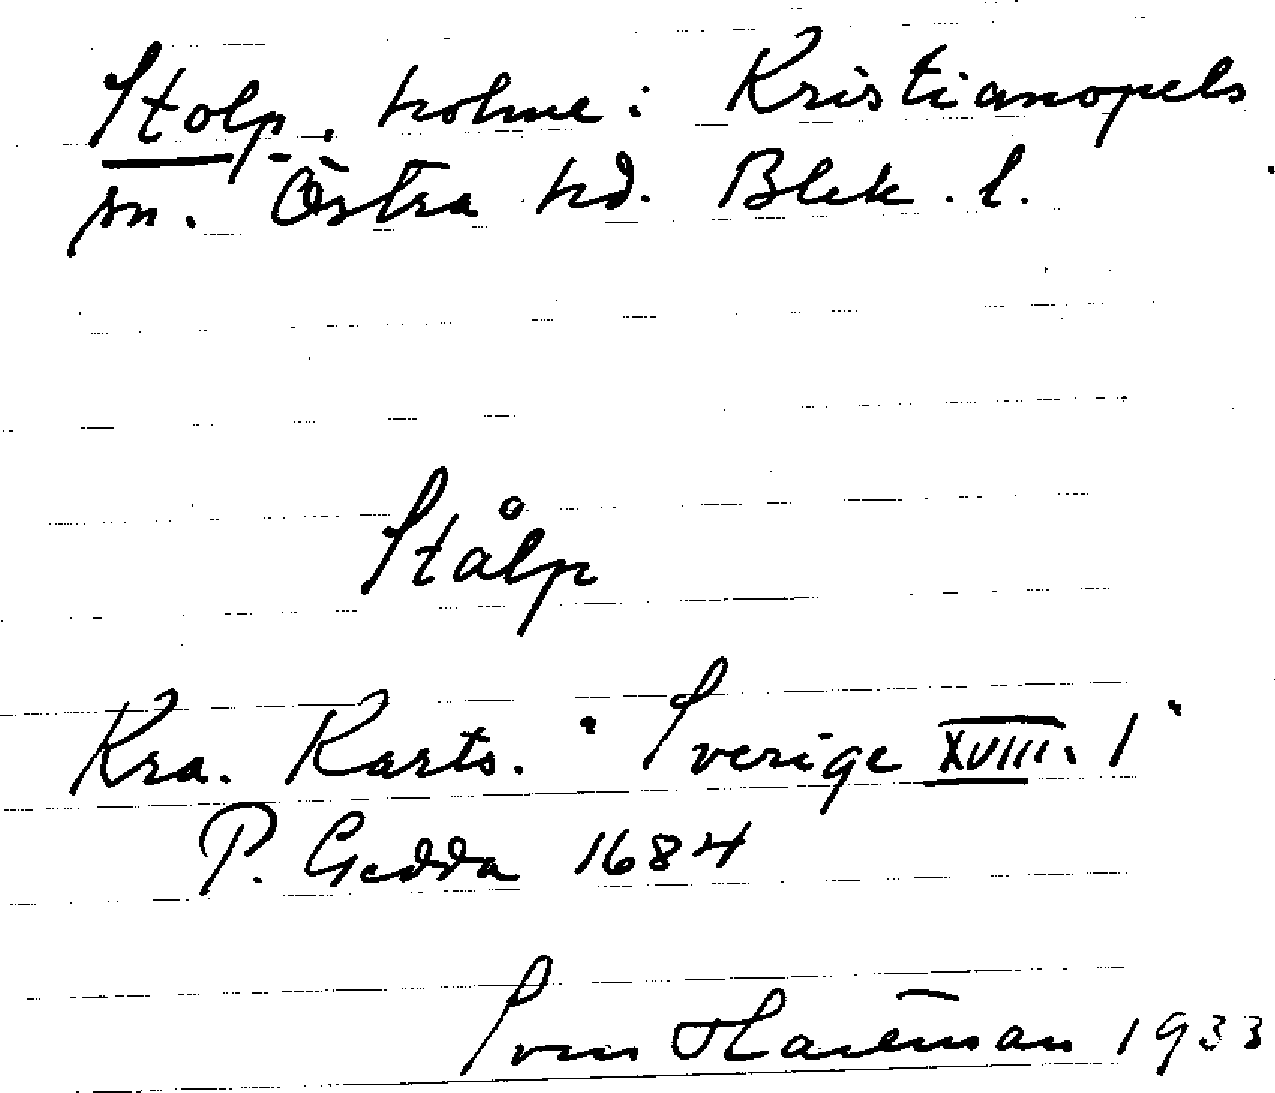 Stolp, holme: Kristianopels
sn. Östra hd. Blek. l.
Stålp
Kra. Karts. "Sverige XVIII. 1"
P. Gedda 1684
Sven 1933